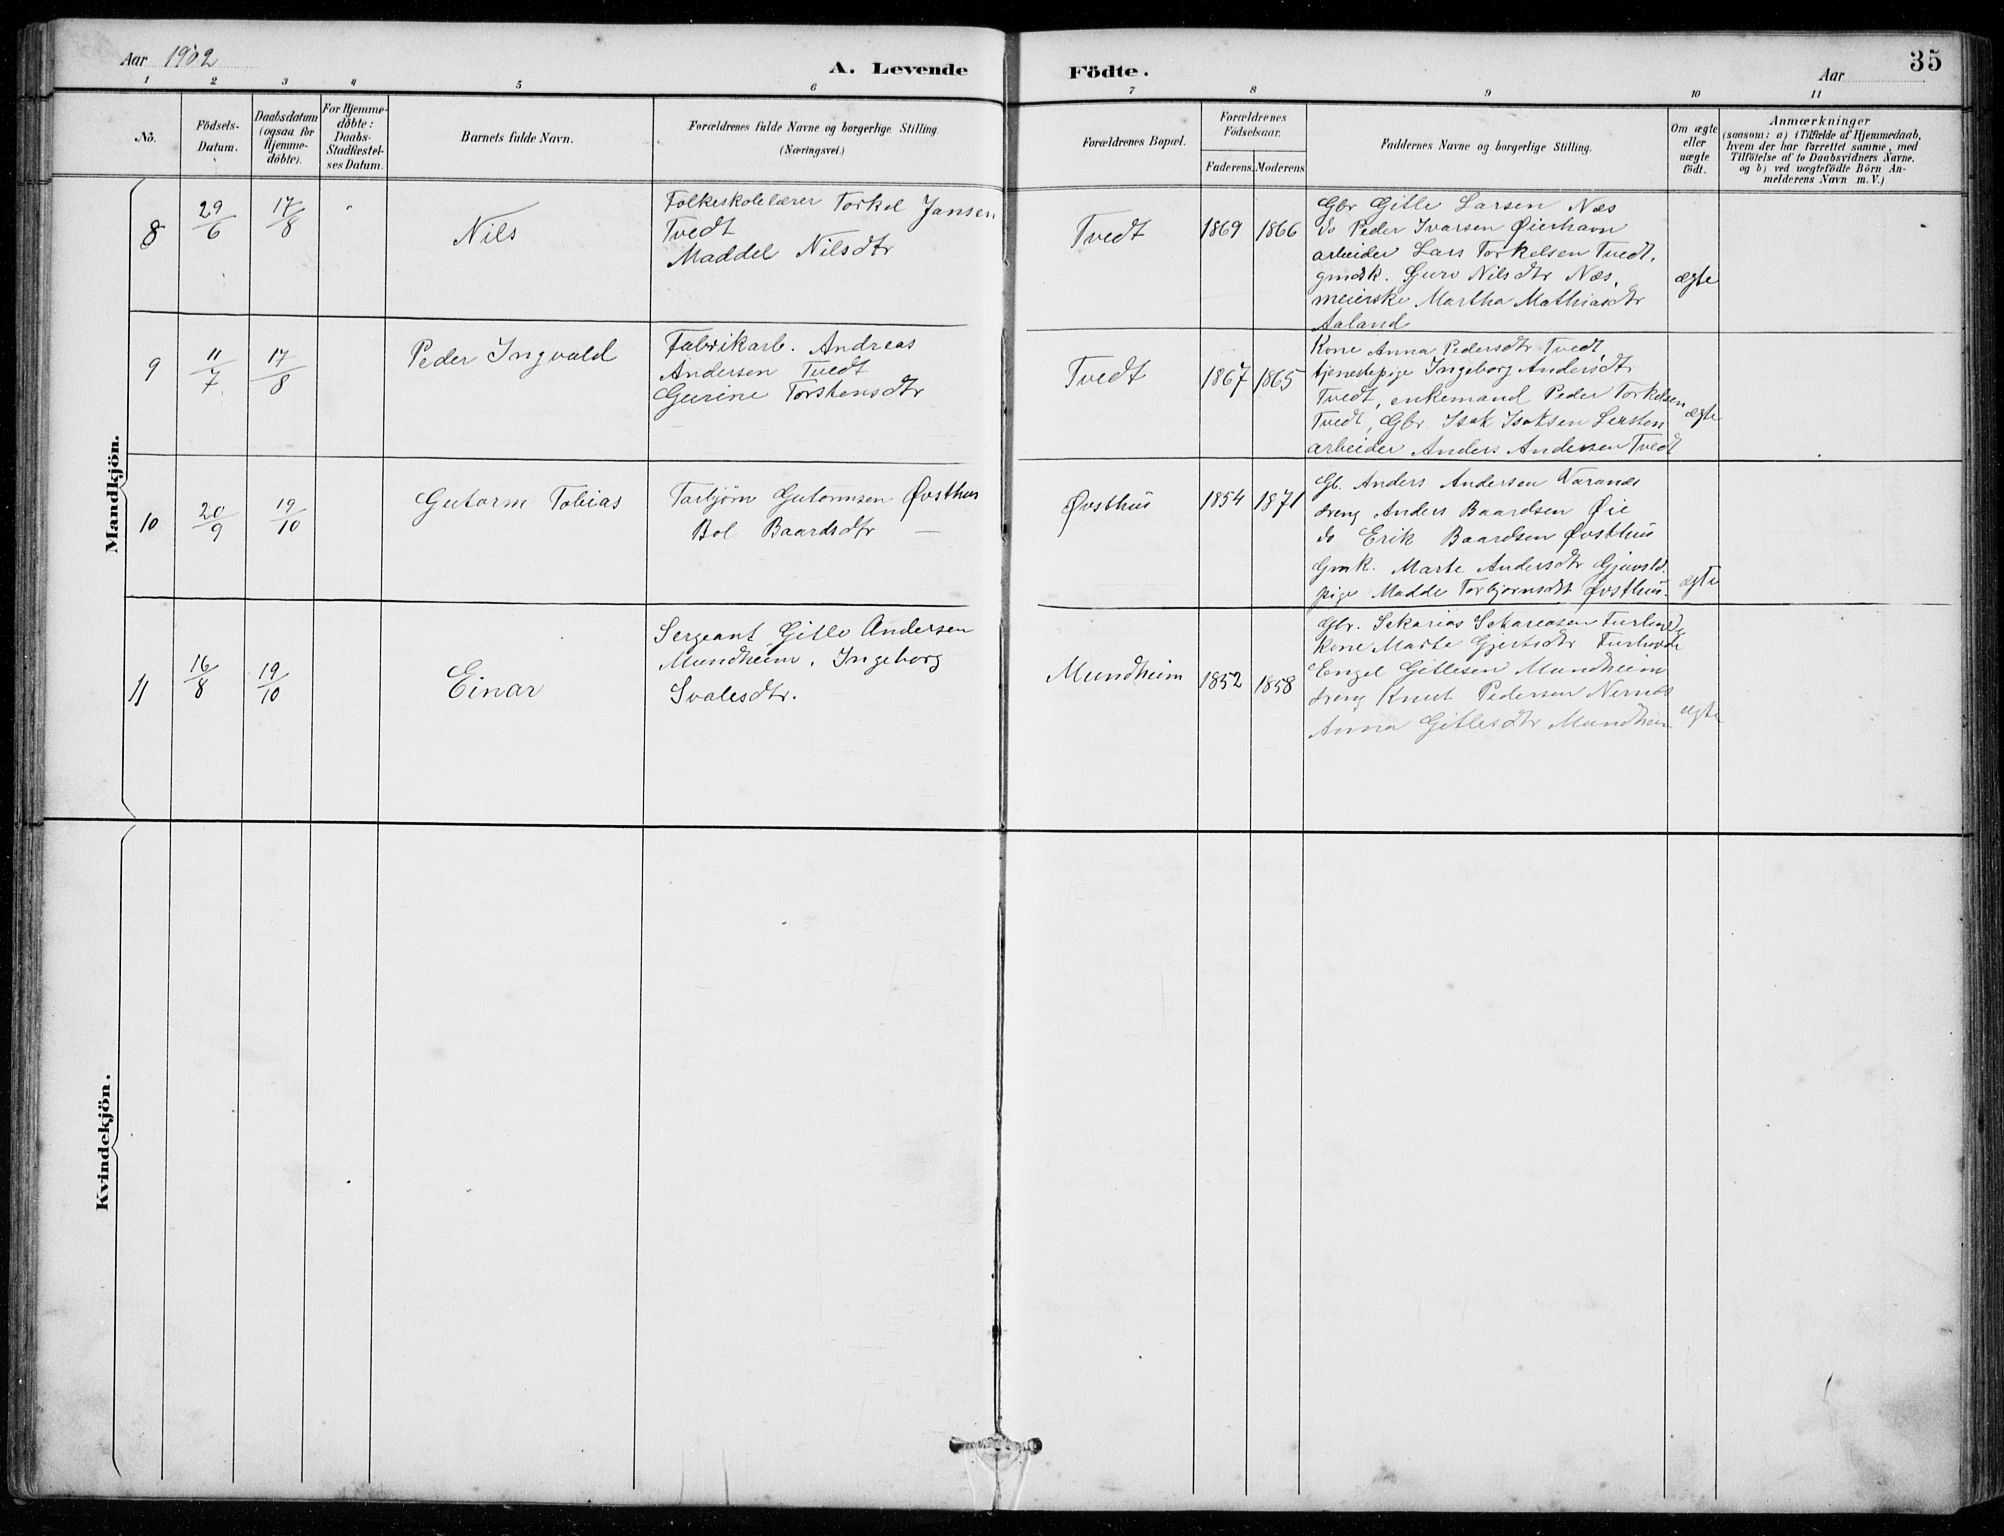 Aar 1902
A. Levende Födte.
Aar
35
1 2 3 4 5 6 7 8 9 10 11
No.
Födsels-Datum.
Daabsdatum (ogsaa for Hjemmedöbte).
For Hjemmedöbte: Daabs-Stadfæstelses Datum.
Barnets fulde Navn.
Forældrenes fulde Navne og borgerlige Stilling. (Næringsvei.)
Forældrenes Bopæl.
Forældrenes Födselsaar.
Faderens. Moderens
Faddernes Navne og borgerlige Stilling.
Om ægte eller uægte födt.
Anmærkninger
(saasom: a) i Tilfælde af Hjemmedaab, hvem der har forrettet samme, med Tilföielse af to Daabsvidners Navne. og b) ved uægtefödte Börn Anmelderens Navn m. V.)
Mandkjön.
8
29/6
17/8
Nils
Folkeskolelærer Torkel Jansen
Tvedt
Maddel Nilsdtr
Tvedt
1869 1866
Gbr Gitle Larsen Næs
do Peder Ivarsen Øierhavn
arbeider Lars Torkelsen Tvedt,
gmdsk. Guro Nilsdtr Næs,
meierske Martha Mathiasdtr
Aaland
ægte
9
11/7
17/8
Peder Ingvald
Fabrikarb. Andreas
Andersen Tvedt
Gurine Torstensdtr
Tvedt
1867 1865
Kone Anna Pedersdtr Tvedt,
tjenestepige Ingeborg Andersdtr
Tvedt, enkemand Peder Torkelsen
Tvedt, Gbr. Isak Isaksen
arbeider Anders Andersen Tvedt
ægte
10
20/9
19/10
Gutorm Tobias
Torbjørn Gutormsen Øvsthus
Bol Baardsdtr —
Øvsthus
1854 1871
Gb. Anders Andersen
dreng Anders Baardsen Øie
do Erik Baardsen Øvsthus
Gmk. Marte Andersdtr
pige Madde Torbjørnsdt Øvsthus.
ægte
11
16/8
19/10
Einar
Sergeant Gitle Andersen
Mundheim, Ingeborg
Svalesdtr.
Mundheim
1852 1858
Gbr. Sekarias Sekariasen
Kone Marte Gjertsdtr
Engel Gitlesen Mundheim
dreng Knut Pedersen
Anna Gitlesdtr Mundheim
ægte
Kvindekjön.